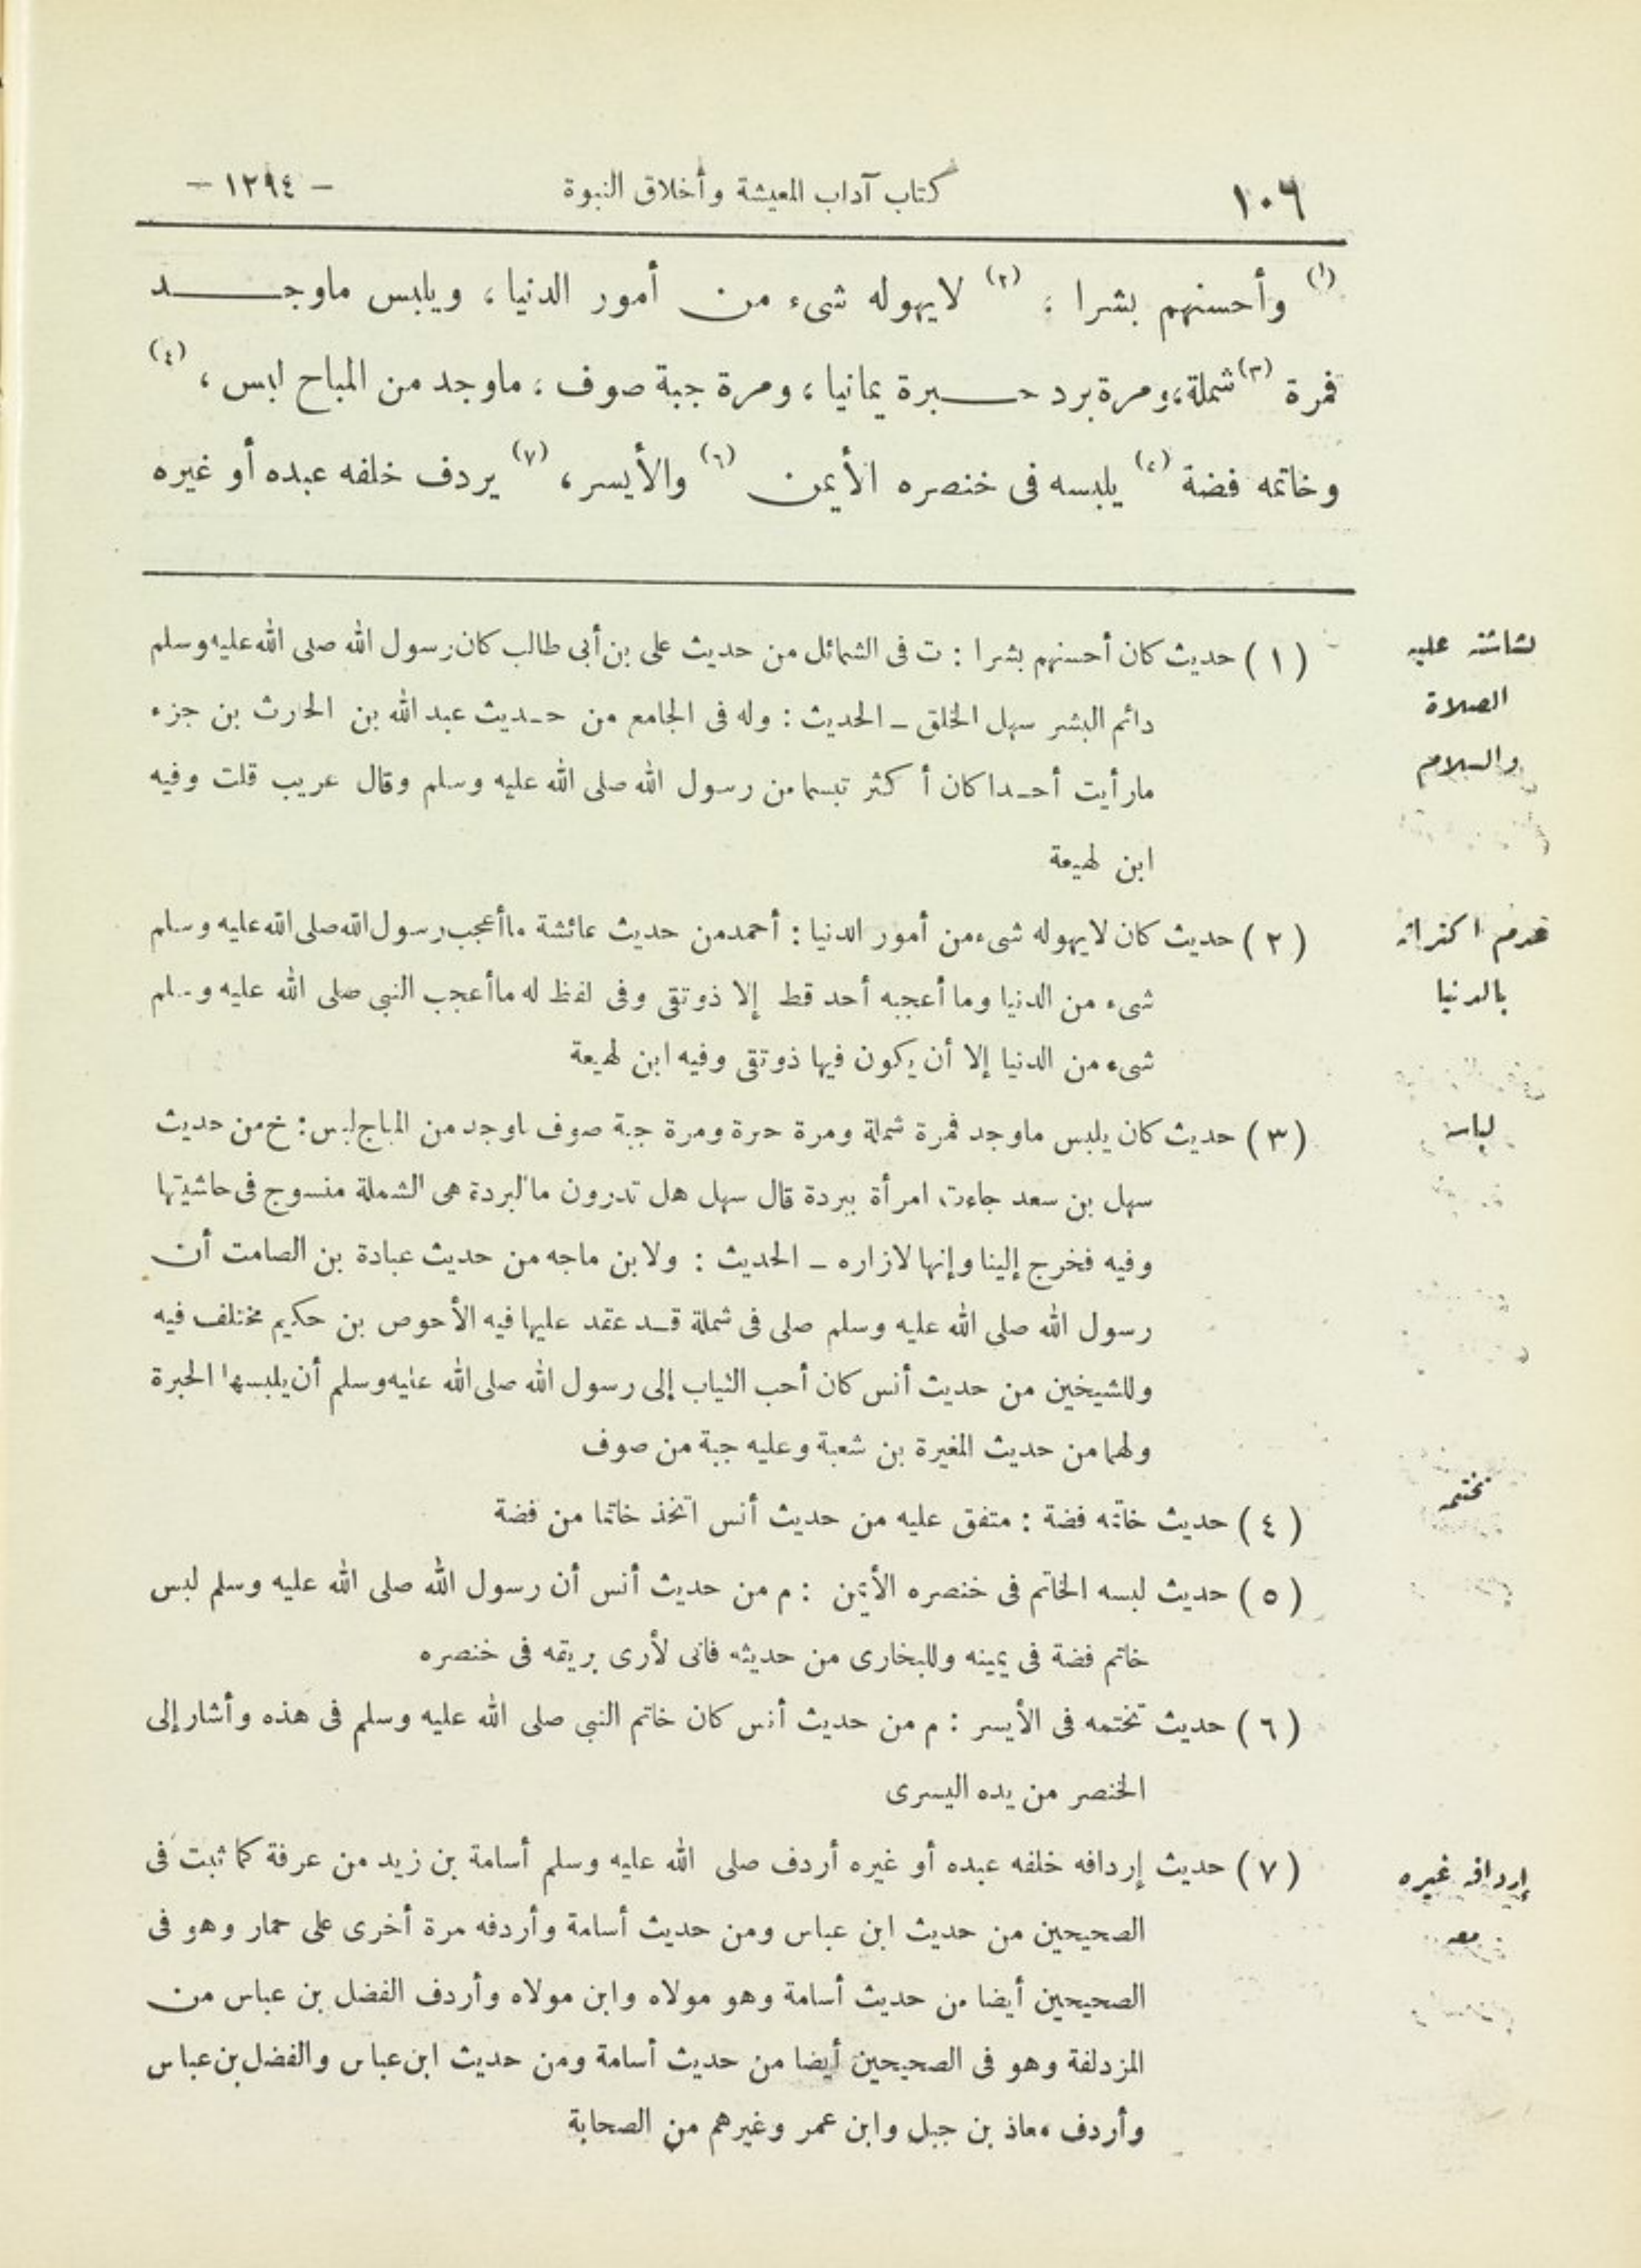 ١٠٦ كتاب آداب المعيشة وأخلاق النبوة – ١٢٩٤ –
(١) وأحسنهم بشرا ، (٢) لايهوله شىء من أمور الدنيا ، ويلبس ماوجد
فمرة (٣) شملة، ومرة برد حبرة يمانيا ، ومرة جبة صوف ، ماوجد من المباح لبس ، (٤)
وخاتمه فضة (٤) يلبسه فى خنصره الأيمن (٦) والأيسر ، (٧) يردف خلفه عبده أو غيره
(١) حديث كان أحسنهم بشرا : ت فى الشمائل من حديث على بن أبى طالب كان رسول الله صلى الله عليه وسلم
دائم البشر سهل الخلق ــ الحديث : وله فى الجامع من حديث عبد الله بن الحارث بن جزء
مارأيت أحدا كان أكثر تبسما من رسول الله صلى الله عليه وسلم وقال غريب قلت وفيه
ابن لهيعة
(٢) حديث كان لايهوله شىء من أمور الدنيا : أحمد من حديث عائشة ماأعجب رسول الله صلى الله عليه وسلم
شىء من الدنيا وما أعجبه أحد قط إلا ذوتقى وفى لفظ له ماأعجب النبى صلى الله عليه وسلم
شىء من الدنيا إلا أن يكون فيها ذوتقى وفيه ابن لهيعة
(٣) حديث كان يلبس ماوجد فمرة شملة ومرة حبرة ومرة جبة صوف ماوجد من المباح لبس : خ من حديث
سهل بن سعد جاءت امرأة ببردة قال سهل هل تدرون ماالبردة هى الشملة منسوج فى حاشيتها
وفيه فخرج إلينا وإنها لازاره ــ الحديث : ولابن ماجه من حديث عبادة بن الصامت أن
رسول الله صلى الله عليه وسلم صلى فى شملة قد عقد عليها فيه الأحوص بن حكيم مختلف فيه
وللشيخين من حديث أنس كان أحب الثياب إلى رسول الله صلى الله عليه وسلم أن يلبسها الحبرة
ولهما من حديث المغيرة بن شعبة وعليه جبة من صوف
(٤) حديث خاتمه فضة : متفق عليه من حديث أنس اتخذ خاتما من فضة
(٥) حديث لبسه الخاتم فى خنصره الأيمن : م من حديث أنس أن رسول الله صلى الله عليه وسلم لبس
خاتم فضة فى يمينه وللبخارى من حديثه فانى لأرى بريقه فى خنصره
(٦) حديث تختمه فى الأيسر : م من حديث أنس كان خاتم النبى صلى الله عليه وسلم فى هذه وأشار إلى
الخنصر من يده اليسرى
(٧) حديث إردافه خلفه عبده أو غيره أردف صلى الله عليه وسلم أسامة بن زيد من عرفة كما ثبت فى
الصحيحين من حديث ابن عباس ومن حديث أسامة وأردفه مرة أخرى على حمار وهو فى
الصحيحين أيضا من حديث أسامة وهو مولاه وابن مولاه وأردف الفضل بن عباس من
المزدلفة وهو فى الصحيحين أيضا من حديث أسامة ومن حديث ابن عباس والفضل بن عباس
وأردف معاذ بن جبل وابن عمر وغيرهم من الصحابة
بشاشته عليه
الصلاة
والسلام
عدم اكتراثه
بالدنيا
لباسه
تختمه
إردافه غيره
معه